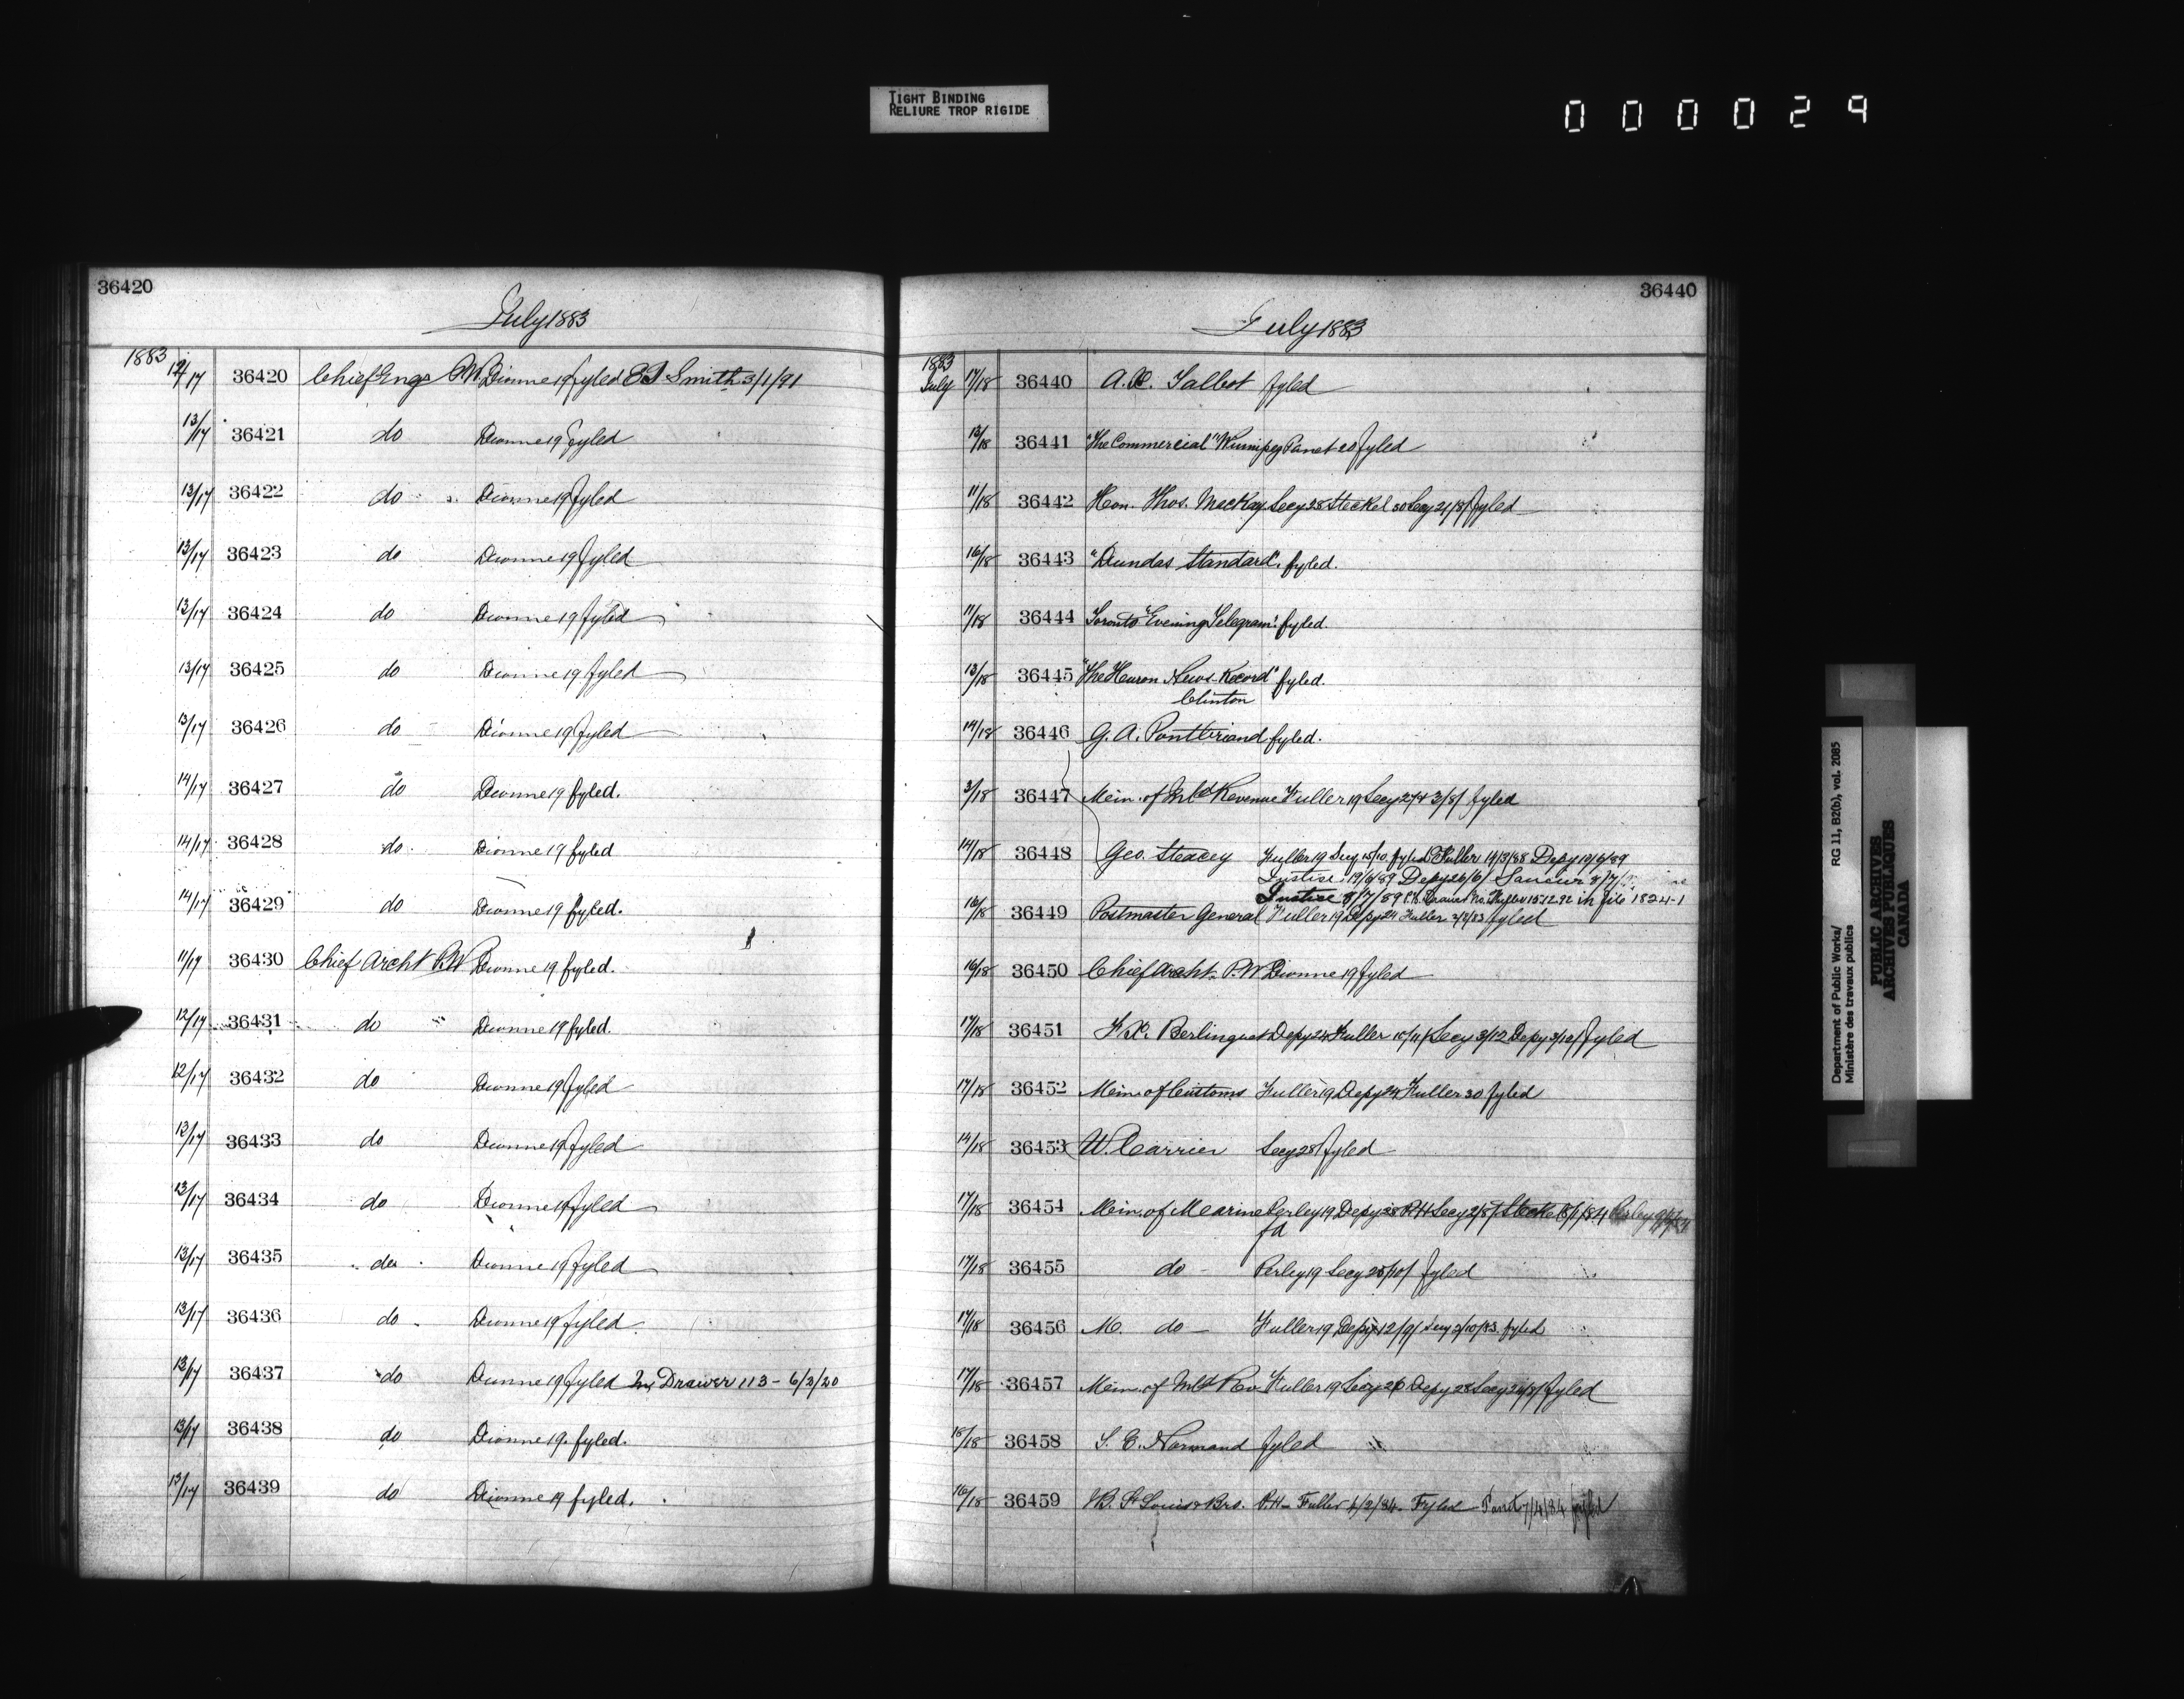 TIGHT BINDING
RELIURE TROP RIGIDE
000029
36420
July 1883
1883 12/17 36420 Chief Engr P.W. Dionne 19 fyled E T Smith 3/1/91
13/17 36421 do Dionne 19 fyled
13/17 36422 do Dionne 19 fyled
13/17 36423 do Dionne 19 fyled
13/17 36424 do Dionne 19 fyled
13/17 36425 do Dionne 19 fyled
13/17 36426 do Dionne 19 fyled
14/17 36427 do Dionne 19 fyled.
14/17 36428 do Dionne 19 fyled
14/17 36429 do Dionne 19 fyled.
11/17 36430 Chief Archt P.W Dionne 19 fyled.
12/17 36431 do Dionne 19 fyled.
12/17 36432 do Dionne 19 fyled
12/17 36433 do Dionne 19 fyled
13/17 36434 do Dionne 19 fyled
13/17 36435 do Dionne 19 fyled
13/17 36436 do Dionne 19 fyled.
13/17 36437 do Dionne 19 fyled In Drawer 113 - 6/3/20
13/17 36438 do Dionne 19. fyled.
13/17 36439 do Dionne 19 fyled.
36440
July 1883
1883
July 17/18 36440 A. Talbot fyled
13/18 36441 "The Commercial" Winnipeg Panet 20 fyled
11/18 36442 Hon. Thos. McKay Secy 28 Steckel 30 Secy 21/8/ fyled
16/18 36443 "Dundas Standard". fyled.
11/18 36444 Toronto "Evening Telegram". fyled.
13/18 36445 "The Huron News-Record" fyled.
Clinton
14/18 36446 G. A. fyled.
3/18 36447 Min. of Inld Revenue Fuller 19 Secy 27 & 3/8/ fyled
14/18 36448 Geo. Steacey Fuller 19 Secy 15/10. fyled Fuller 14/3/88 Depy 19/6/89
Justice 19/6/89 Depy 26/6/ 8/7/
Justice 8/7/89 Fuller 15.12.92 in file 1824-1
16/18 36449 Postmaster General Fuller 19 Depy 24 Fuller 2/8/83 fyled
16/18 36450 Chief Archt. P.W Dionne 19 fyled
17/18 36451 F.X. Berlinguet Depy 24 Fuller 10/11/ Secy 3/12 Depy 3/12/ fyled
17/18 36452 Min. of Customs Fuller 19 Depy 24 Fuller 30 fyled
14/18 36453 W. Carrier Secy 28/ fyled
17/18 36454 Min. of Marine Perley 19 Depy 28 P.H Secy 2/8/ Steckel 8/1/84 Perley
fd
17/18 36455 do Perley 19 Secy 25/10/ fyled
17/18 36456 M. do Fuller 19 Depy 12/9/ Secy 2/10/83. fyled
17/18 36457 Min. of Inld Rev. Fuller 19 Secy 26 Depy 28 Secy fyled
18/18 36458 S. E. Normand fyled
16/18 36459 B. St Louis & Bro. P.H - Fuller 4/2/84. Fyled - 7/4/84 fyled
Department of Public Works/ RG 11, B2(b), vol. 2085
Ministère des travaux publics
PUBLIC ARCHIVES
ARCHIVES PUBLIQUES
CANADA